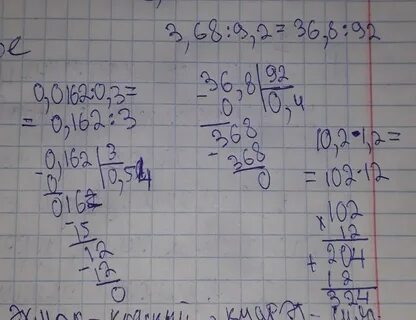 3,68:9,2=36,8:92
ое
0,0162:0,3=
= 0,162:3
-0,162|3
0 |0,54
0162
-15
12
-12
0
-36,8|92
0 |0,4
368
-368
0
10,2·1,2=
= 102·12
×102
12
+204
12
324